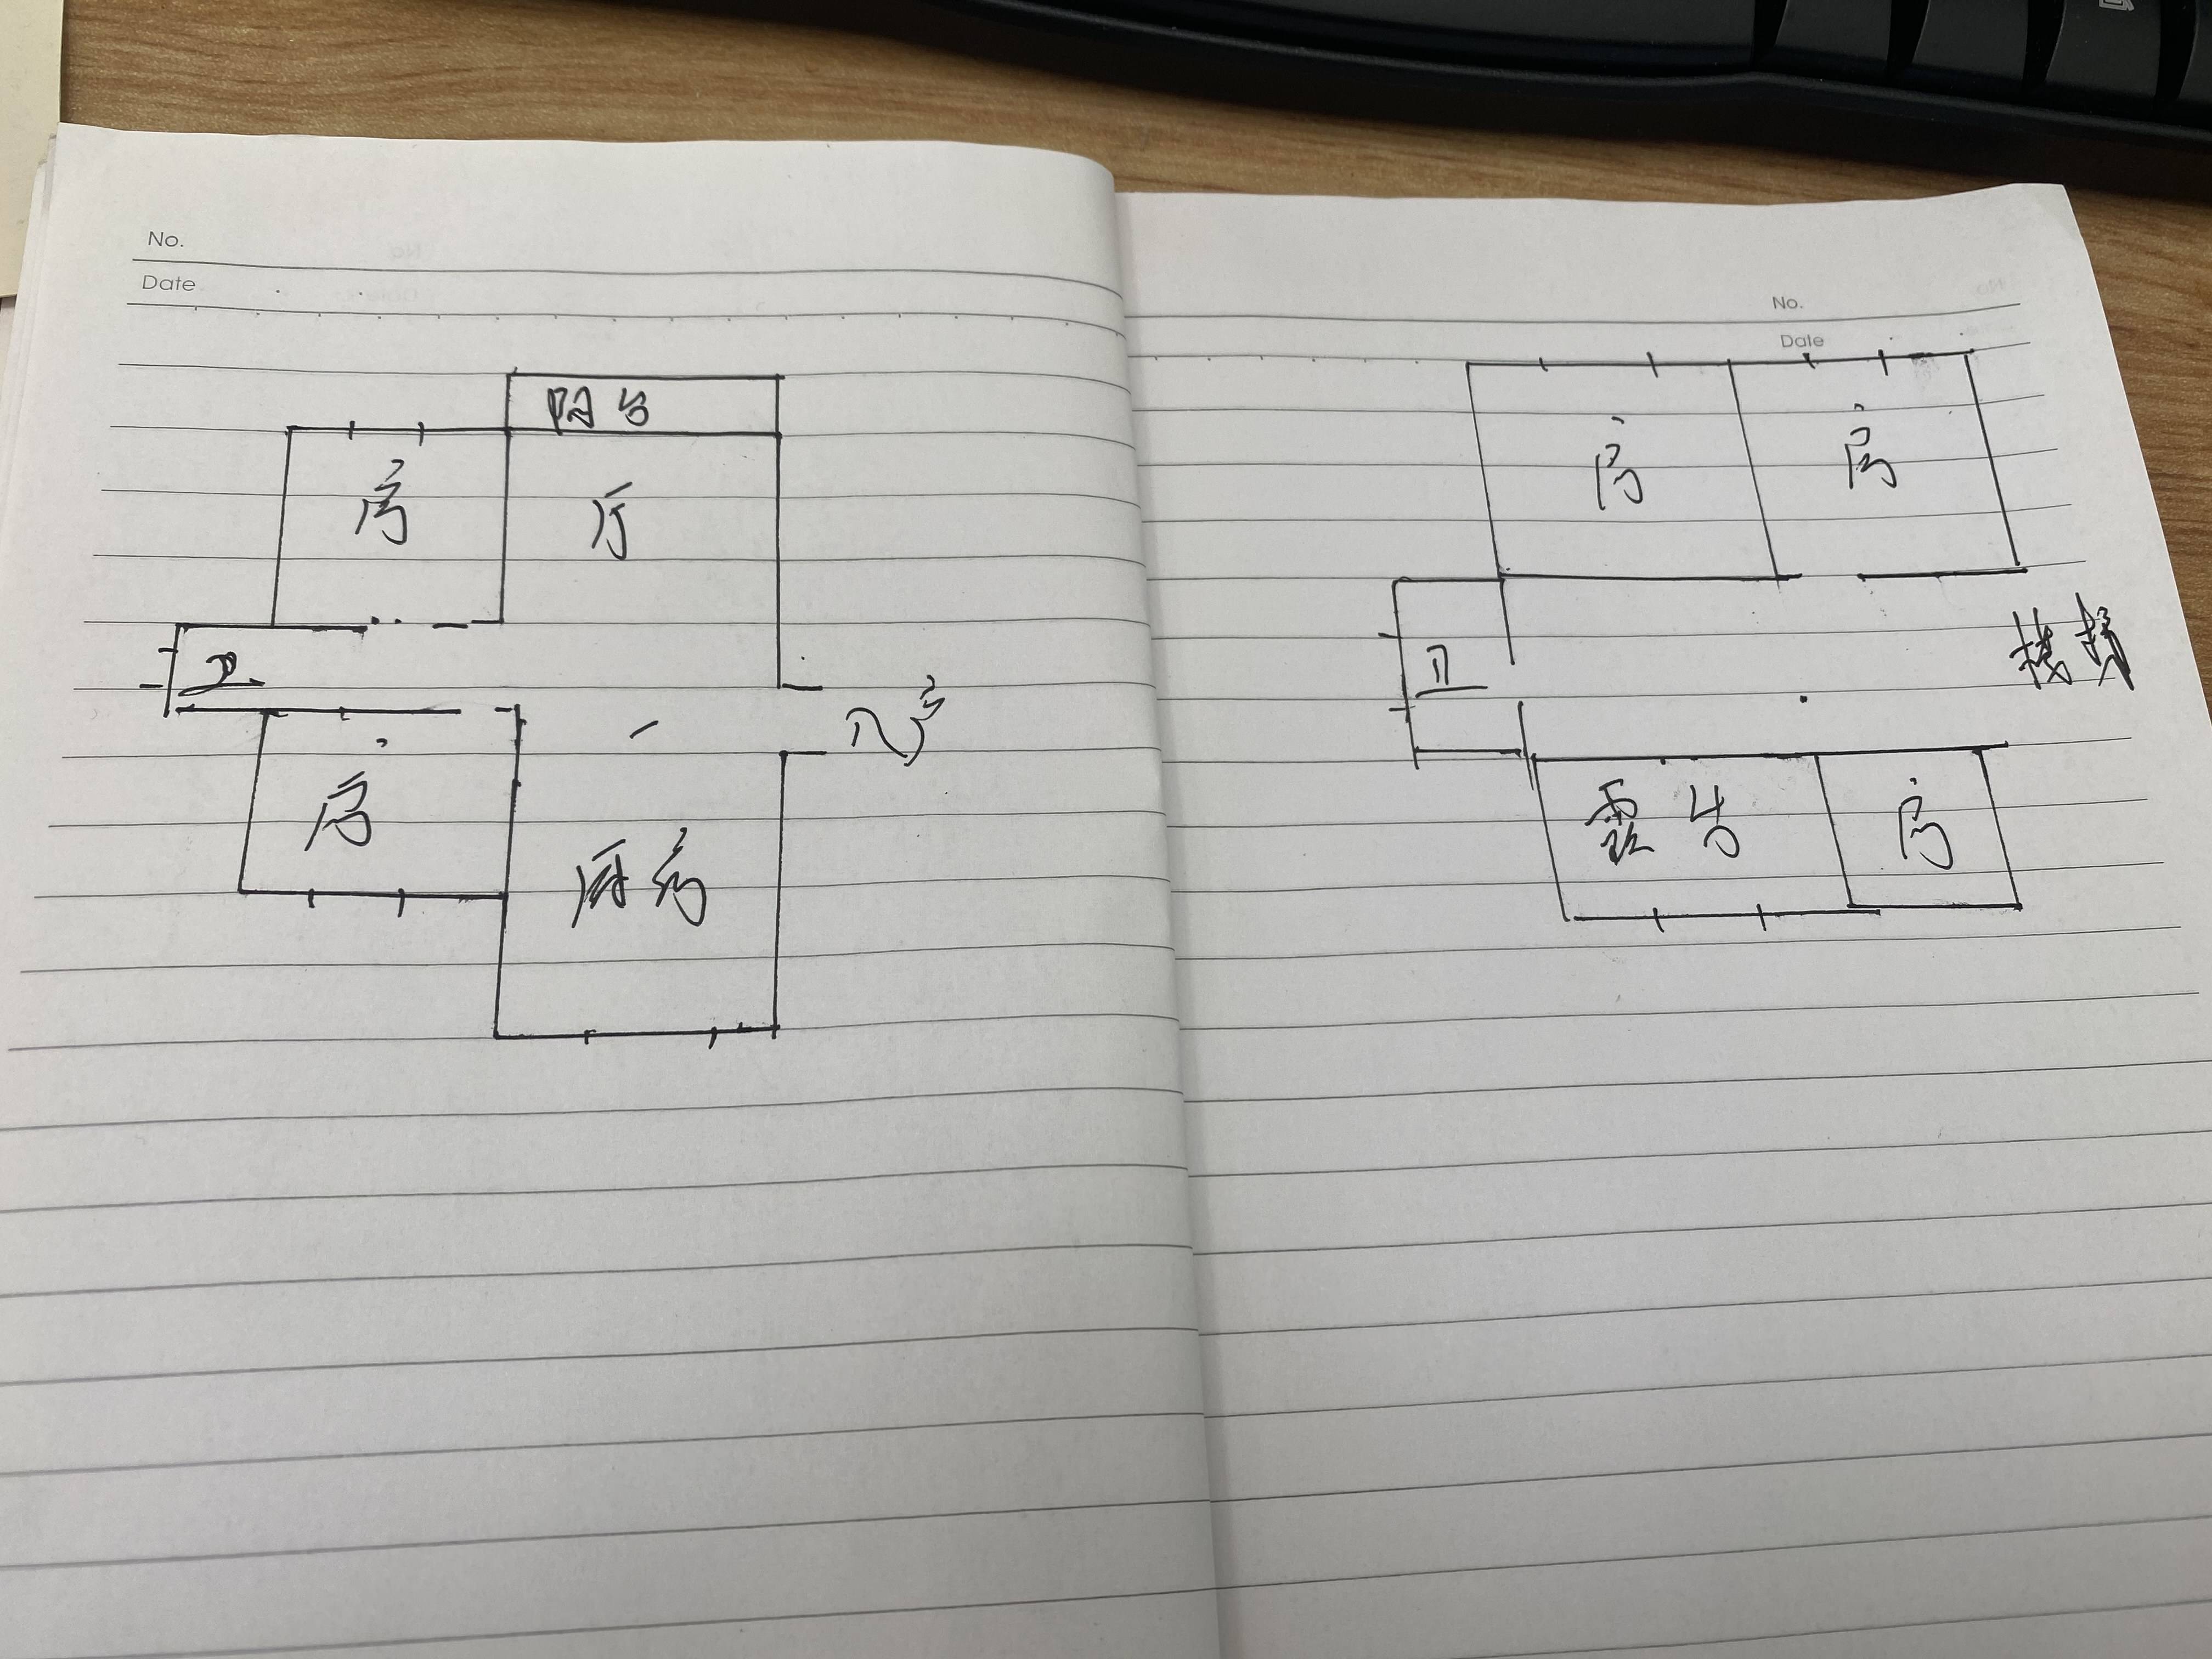 No.
Date
阳台
房
厅
卫
入户
房
厨房
No.
Date
房
房
卫
楼梯
露台
房